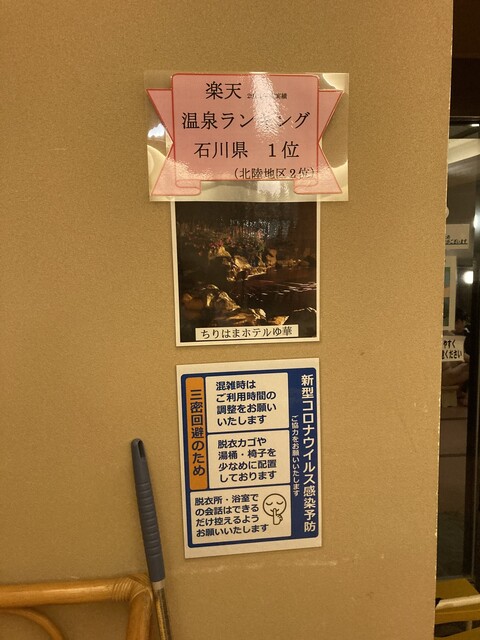 楽天
温泉ランキング
石川県 1位
(北陸地区2位)
ちりはまホテルゆ華
新型コロナウイルス感染予防
ご協力をお願いいたします
三密回避のため
混雑時は
ご利用時間の
調整をお願い
いたします
脱衣カゴや
湯桶・椅子を
少なめに配置
しております
脱衣所・浴室で
の会話はできる
だけ控えるよう
お願いいたします